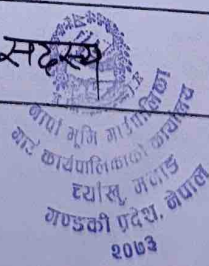 सदस्य
नार्पा भूमि गाउँपालिका
गाउँ कार्यपालिकाको कार्यालय
च्याँखु, मनाङ
गण्डकी प्रदेश, नेपाल
२०७३